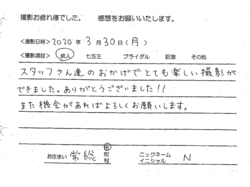 撮影お疲れ様でした。 感想をお願いいたします。
<撮影日時> 2020 年 3 月 30 日 (月)
<撮影項目> 成人 七五三 ブライダル 記念 その他
スタッフさん達のおかげでとても楽しい撮影が
できました。ありがとうございました!!
また機会があればよろしくお願いします。
お住まい 常総 市 ニックネーム イニシャル N